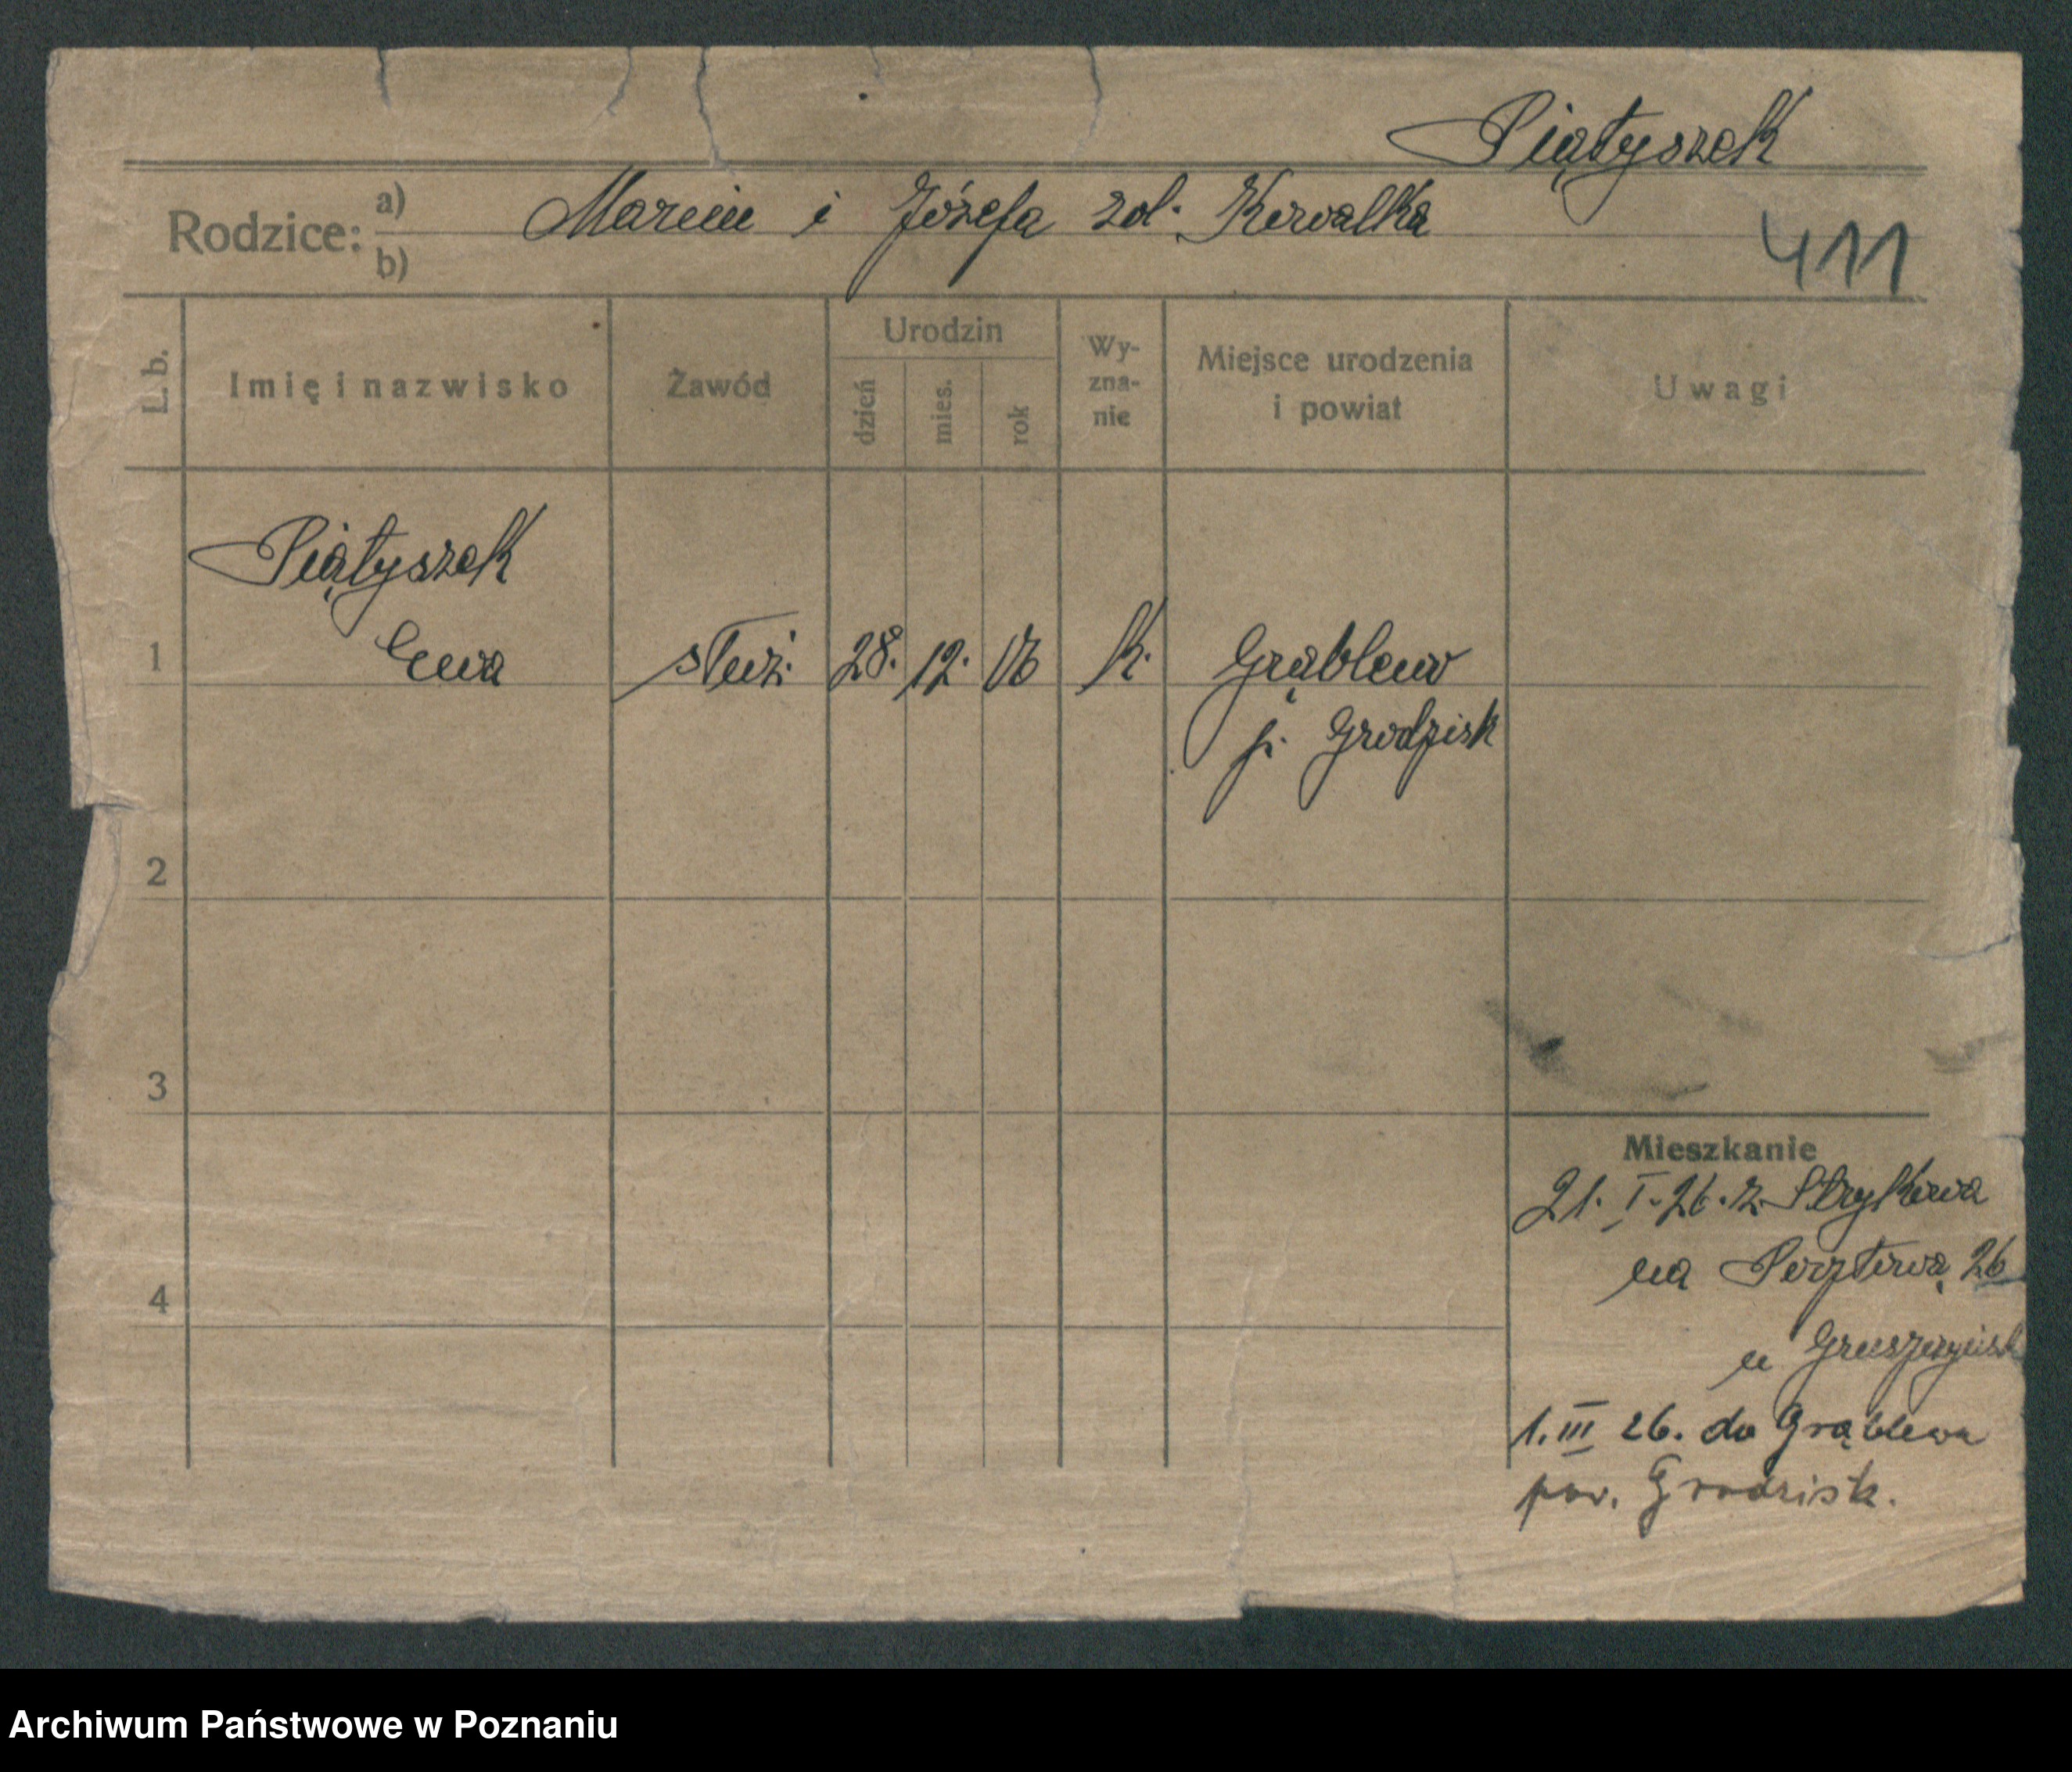 Piątyszek
Rodzice: a) b) Marcin i Józefa zd. Kowalka
411
L. b.
Imię i nazwisko
Zawód
Urodzin
dzień
mies.
rok
Wy-
zna-
nie
Miejsce urodzenia
i powiat
Uwagi
Piątyszek
1 Ewa służ. 28. 12. 06 K. Grąblewo
p. Grodzisk
2
3
4
Mieszkanie
21. I. 26. z Strykowa
na Pocztową 26
u
1. III 26. do Grąblewa
pow. Grodzisk.
Archiwum Państwowe w Poznaniu